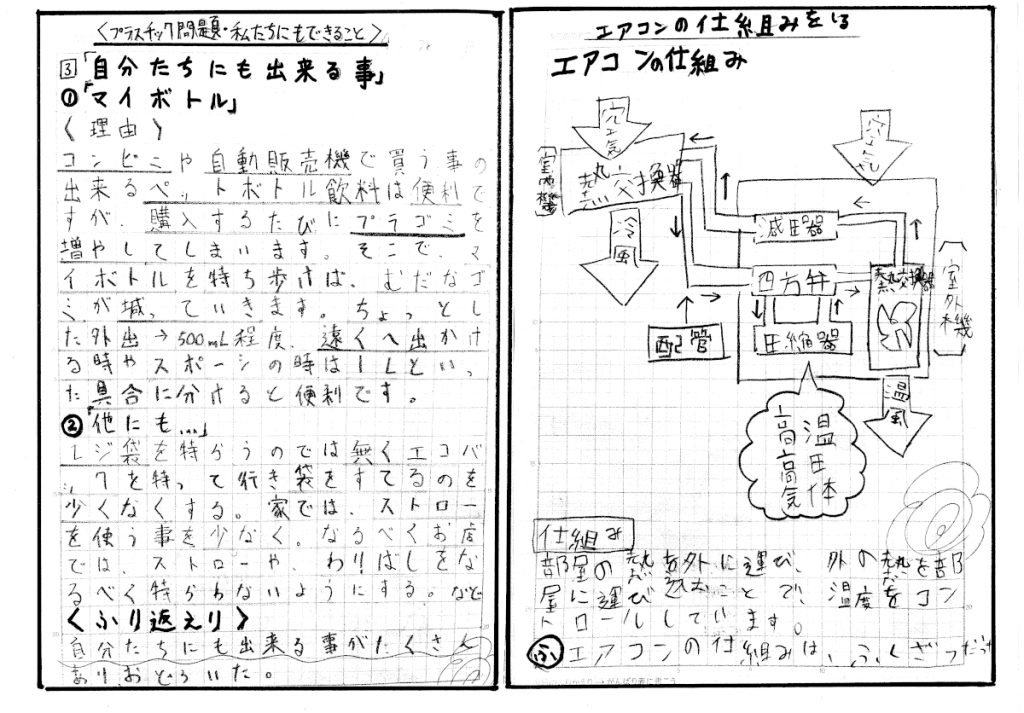 〈プラスチック問題・私たちにもできること〉
3「自分たちにも出来る事」
①「マイボトル」
〈理由〉
コンビニや自動販売機で買う事の
出来るペットボトル飲料は便利で
すが、購入するたびにプラゴミを
増やしてしまいます。そこで、マ
イボトルを持ち歩けば、むだなゴ
ミが減っていきます。ちょっとし
た外出→500mL程度、遠くへ出かけ
る時やスポーツの時は1Lといっ
た具合に分けると便利です。
②「他にも…」
レジ袋を持らうのでは無くエコバ
ックを持って行き袋をすてるのを
少くなくする。家では、ストロー
を使う事を少なく。なるべくお店
では、ストローや、わりばしをな
るべく持らわないようにする。など
〈ふり返えり〉
自分たちにも出来る事がたくさん
ありおどろいた。
エアコンの仕組みをしる
エアコンの仕組み
空気
室内機
熱交換器
冷風
減圧器
四方弁
圧縮器
配管
熱交換器
室外機
温風
高温
高圧
気体
仕組み
部屋の熱を外に運び、外の熱を部
屋に運び込むことで、温度をコン
トロールしています。
ふ エアコンの仕組みは、ふくざつだった